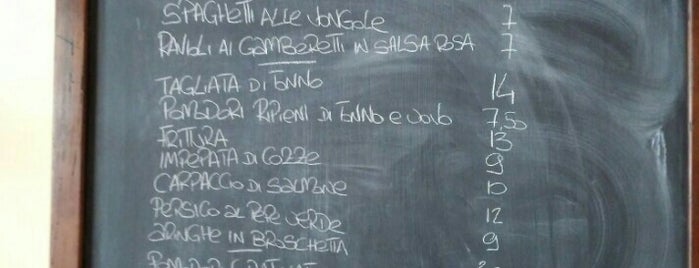 SPAGHETTI ALLE VONGOLE 7
RAVIOLI AI GAMBERETTI IN SALSA ROSA 7
TAGLIATA DI TONNO 14
POMODORI RIPIENI DI TONNO e UOVO 7,50
FRITTURA 13
IMPEPATA DI COZZE 9
CARPACCIO DI SALMONE 10
PERSICO AL PEPE VERDE 12
ARINGHE IN BRUSCHETTA 9
POMODORI